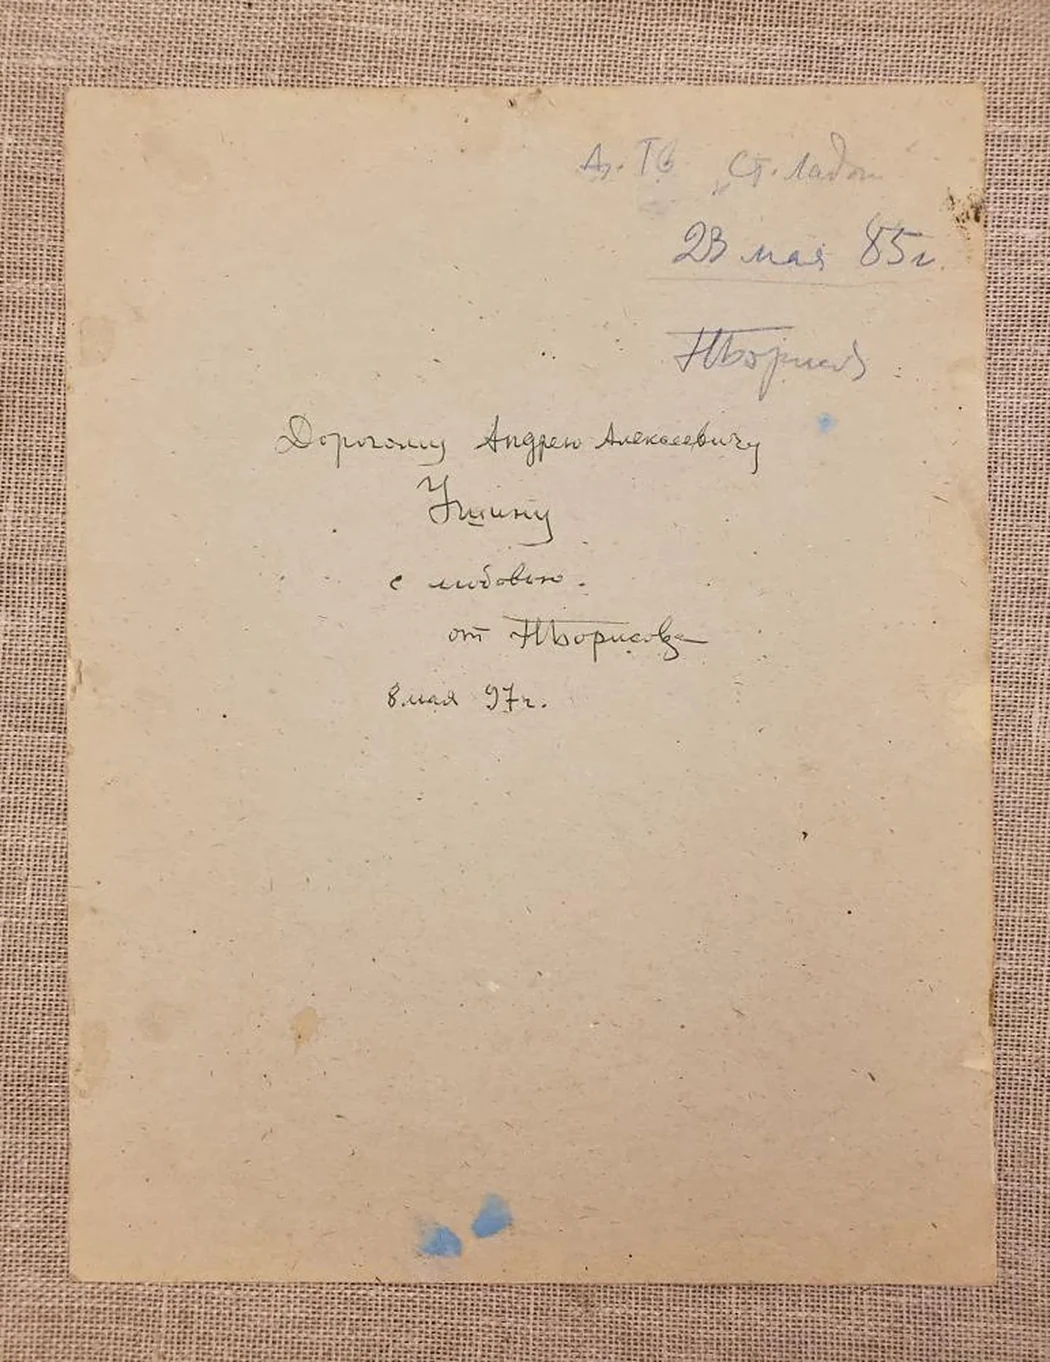 Ст. Ладог
23 мая 85г.
НБорисов
Дорогому Андрею Алексеевичу
Ушину
с любовью.
от НБорисова
8 мая 97г.